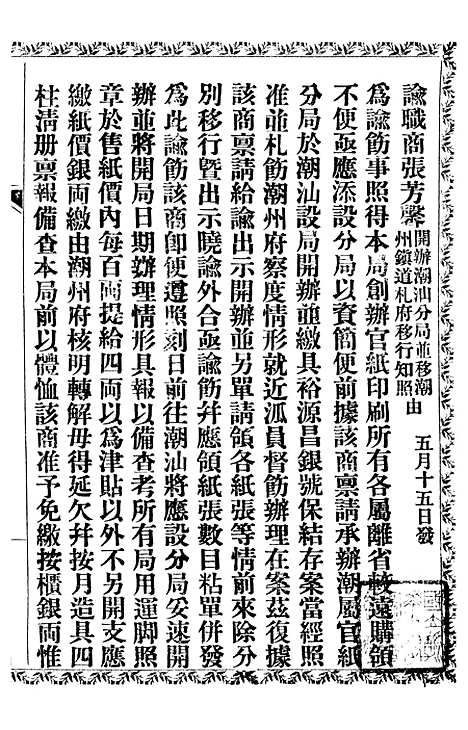 諭職商張芳馨開辦潮汕分局並移潮州鎮道札府移行知照由　五月十五日發
爲諭飭事照得本局創辦官紙印刷所有各屬離省較遠購領
不便亟應添設分局以資簡便前據該商禀請承辦潮屬官紙
分局於潮汕設局開辦並繳具裕源昌銀號保結存案當經照
准並札飭潮州府察度情形就近派員督飭辦理在案茲復據
該商禀請給諭出示開辦並另單請領各紙張等情前來除分
別移行暨出示曉諭外合亟諭飭幷應領紙張數目粘單併發
爲此諭飭該商卽便遵照刻日前往潮汕將應設分局妥速開
辦並將開局日期辦理情形具報以備查考所有局用運脚照
章於售紙價內每百両提給四両以爲津貼以外不另開支應
繳紙價銀両繳由潮州府核明轉解毋得延欠幷按月造具四
柱淸册禀報備查本局前以體恤該商准予免繳按櫃銀両惟